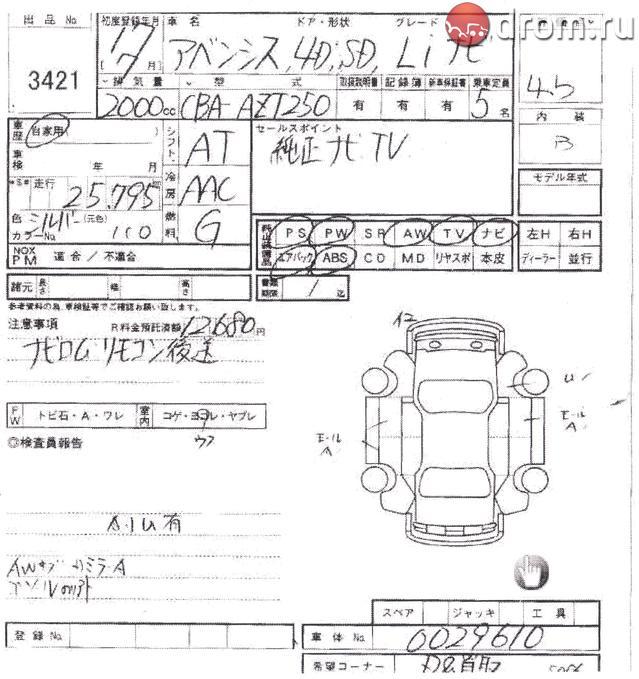 drom.ru
出品No 初度登録年月 車名 ドア・形状 グレード
3421 17 アベンシス 4D SD Li ナビ
7月
排気量 型式 取扱説明書 記録簿 新車保証書 乗車定員
2000cc CBA-AZT250 有 有 有 5名 4.5
車歴 自家用 シフト AT セールスポイント 内装
純正ナビTV B
車検 年 月 冷房 AAC モデル年式
走行 25,795
色 シルバー (元色) 燃料 G
カラーNo 110
PS PW SR AW TV ナビ 左H 右H
NOX PM 適合 / 不適合 エアバック ABS CD MD リヤスポ 本皮 ディーラー 並行
諸元 長さ 幅 高さ 書類期限 / 迄
参考資料の為、車検証等でご確認お願い致します。
注意事項 R料金預託済額 12,680円
ナビロム リモコン後送
FW トビ石・A・ワレ 室内 コゲ・ヨゴレ・ヤブレ
◎検査員報告
モール A
モール A
U
小U有
スペア ジャッキ 工具
登録No 車体No 0029610
希望コーナー